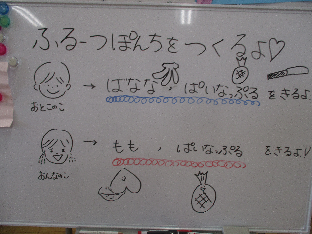 ふるーつぽんちをつくるよ♡
おとこのこ → ばなな、ぱいなっぷるをきるよ
おんなのこ → もも、ぱいなっぷるをきるよ!